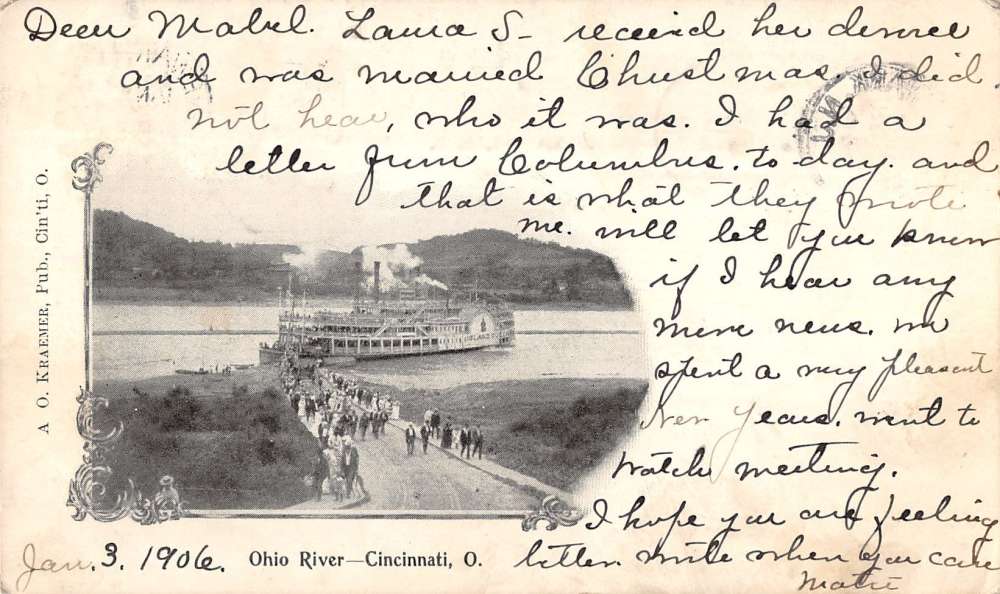 Dear Mabel. Laura S- received her divorce
and was married Christmas. I did
not hear, who it was. I had a
letter from Columbus. to day. and
that is what they wrote
me. will let you know
if I hear any
more news. we
spent a very pleasant
New Years. went to
watch meeting.
I hope you are feeling
better. write when you can
Matie
Jan. 3. 1906.
Ohio River—Cincinnati, O.
A O. KRAEMER, Pub., Cin'ti, O.